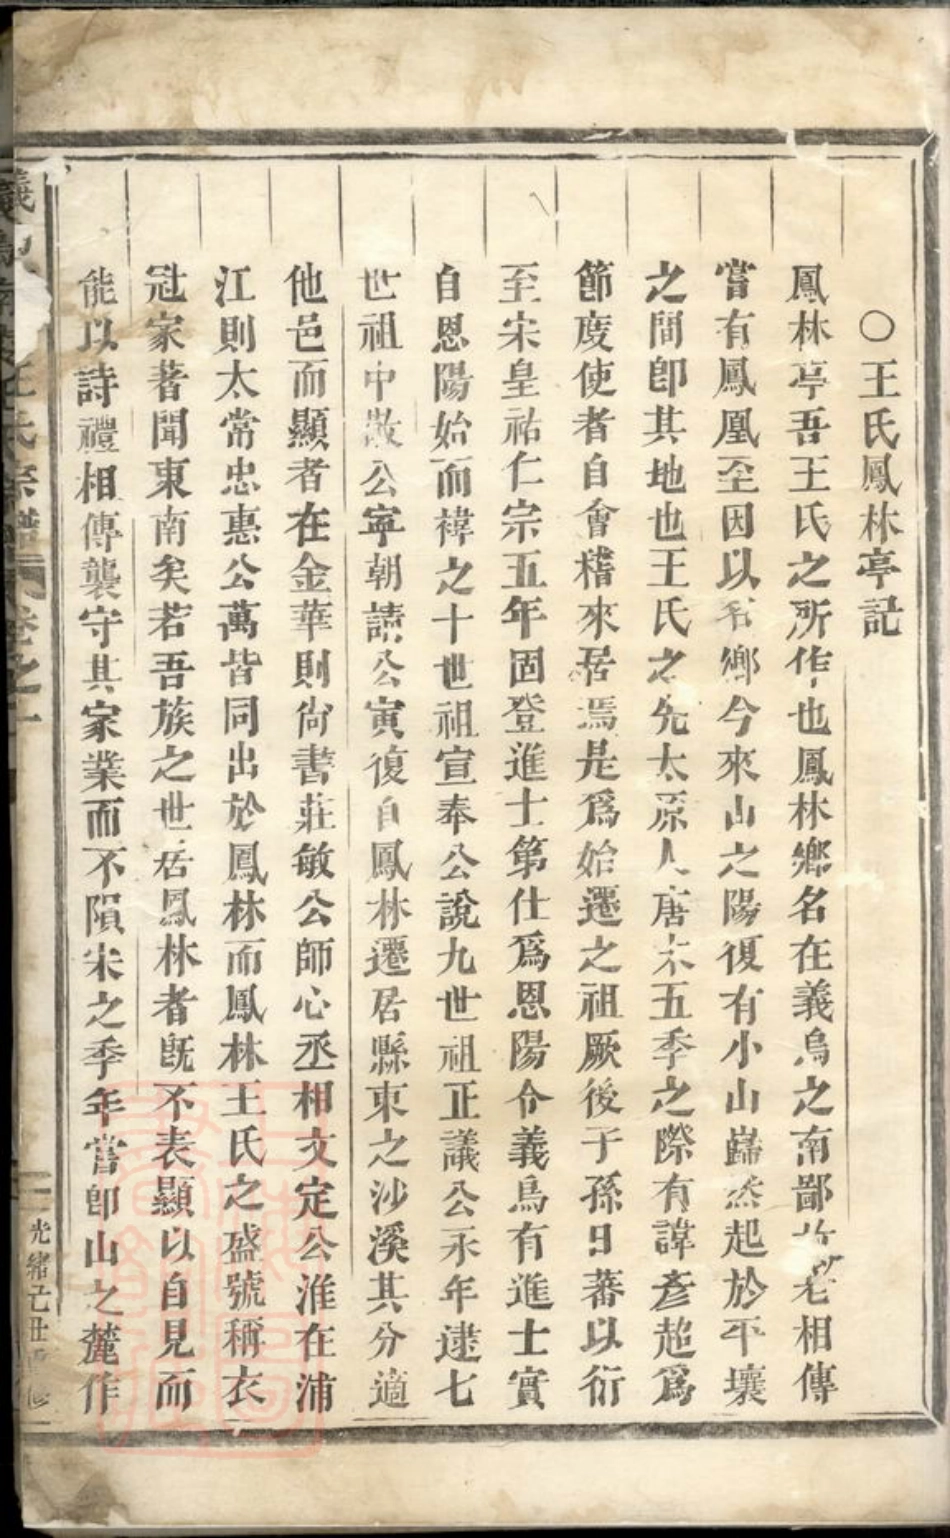 ○王氏鳳林亭記
鳳林亭吾王氏之所作也鳳林鄉名在義烏之南鄙故老相傳
嘗有鳳凰至因以名鄉今來山之陽復有小山巋然起於平壤
之間卽其地也王氏之先太原人唐末五季之際有諱彥超爲
節度使者自會稽來居焉是爲始遷之祖厥後子孫日蕃以衍
至宋皇祐仁宗五年固登進士第仕爲恩陽令義烏有進士實
自恩陽始而禕之十世祖宣奉公說九世祖正議公永年逮七
世祖中散公寧朝請公寅復自鳳林遷居縣東之沙溪其分適
他邑而顯者在金華則尙書莊敏公師心丞相文定公淮在浦
江則太常忠惠公萬皆同出於鳳林而鳳林王氏之盛號稱衣
冠家著聞東南矣若吾族之世居鳳林者旣不表顯以自見而
能以詩禮相傳襲守其家業而不隕宋之季年嘗卽山之麓作
義烏 王氏宗譜 卷之一
光緒己丑重修